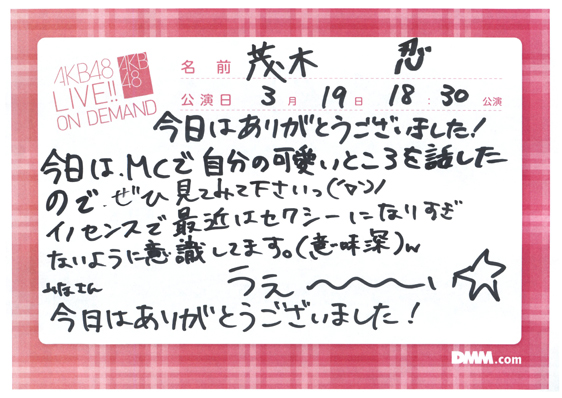 AKB48
LIVE!!
ON DEMAND
AKB
48
名前 茂木 忍
公演日 3月 19日 18:30 公演
今日はありがとうございました!
今日は、MCで自分の可愛いところを話した
ので、ぜひ見てみて下さいっ(´∀`)ノ
イノセンスで最近はセクシーになりすぎ
ないように意識してます。(意味深)w
うぇ〜〜〜い☆
みなさん
今日はありがとうございました!
DMM.com